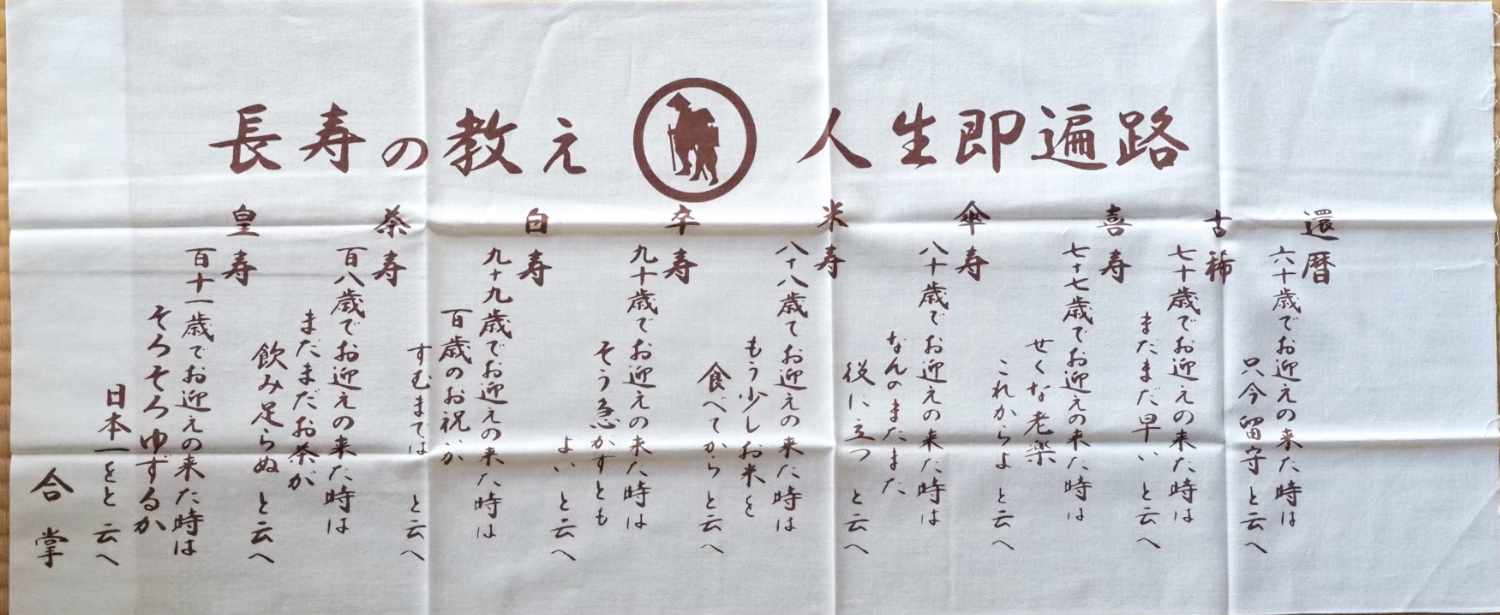 人生即遍路
長寿の教え
還暦
六十歳でお迎えの来た時は
只今留守と云へ
古稀
七十歳でお迎えの来た時は
まだまだ早い と云へ
喜寿
七十七歳でお迎えの来た時は
せくな老楽
これからよ と云へ
傘寿
八十歳でお迎えの来た時は
なんのまだまだ
役に立つ と云へ
米寿
八十八歳でお迎えの来た時は
もう少しお米を
食べてから と云へ
卒寿
九十歳でお迎えの来た時は
そう急がずとも
よい と云へ
白寿
九十九歳でお迎えの来た時は
百歳のお祝が
すむまでは と云へ
茶寿
百八歳でお迎えの来た時は
まだまだお茶が
飲み足らぬ と云へ
皇寿
百十一歳でお迎えの来た時は
そろそろゆずるか
日本一をと云へ
合掌